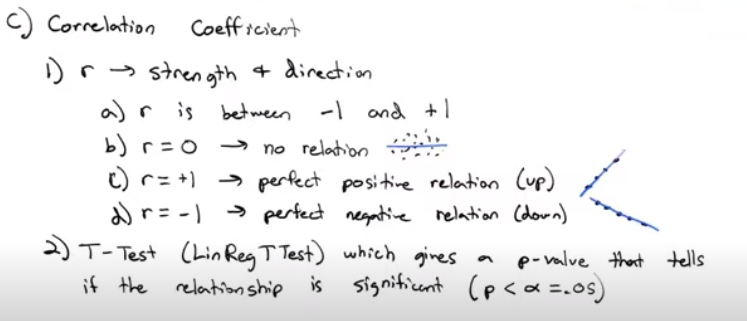 C) Correlation Coefficient
1) r → strength & direction
a) r is between -1 and +1
b) r = 0 → no relation
c) r = +1 → perfect positive relation (up)
d) r = -1 → perfect negative relation (down)
2) T-Test (LinRegTTest) which gives a p-value that tells
if the relationship is significant (p < α = .05)